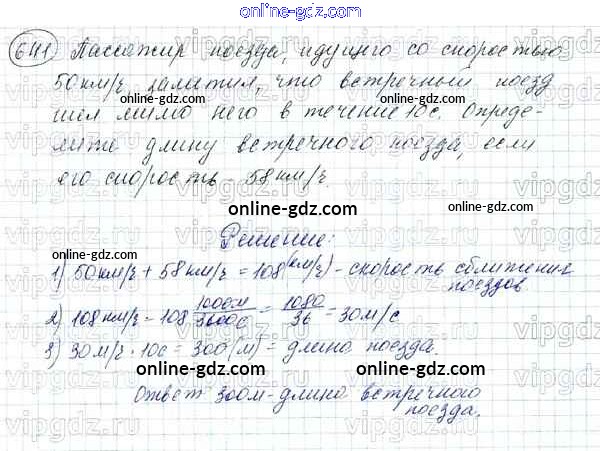 online-gdz.com
641 Пассажир поезда, идущего со скоростью
50км/ч заметил, что встречный поезд
шел мимо него в течение 10с. Опреде-
лите длину встречного поезда, если
его скорость - 58км/ч.
online-gdz.com
Решение:
1) 50км/ч + 58км/ч = 108(км/ч) - скорость сближения
поездов
2) 108км/ч = 108 1000м/3600с = 1080/36 = 30м/с
3) 30м/ч · 10с = 300(м) = длина поезда.
Ответ 300м - длина встречного
поезда.
online-gdz.com
online-gdz.com
online-gdz.com
online-gdz.com
online-gdz.com
online-gdz.com
online-gdz.com
vipgdz.ru